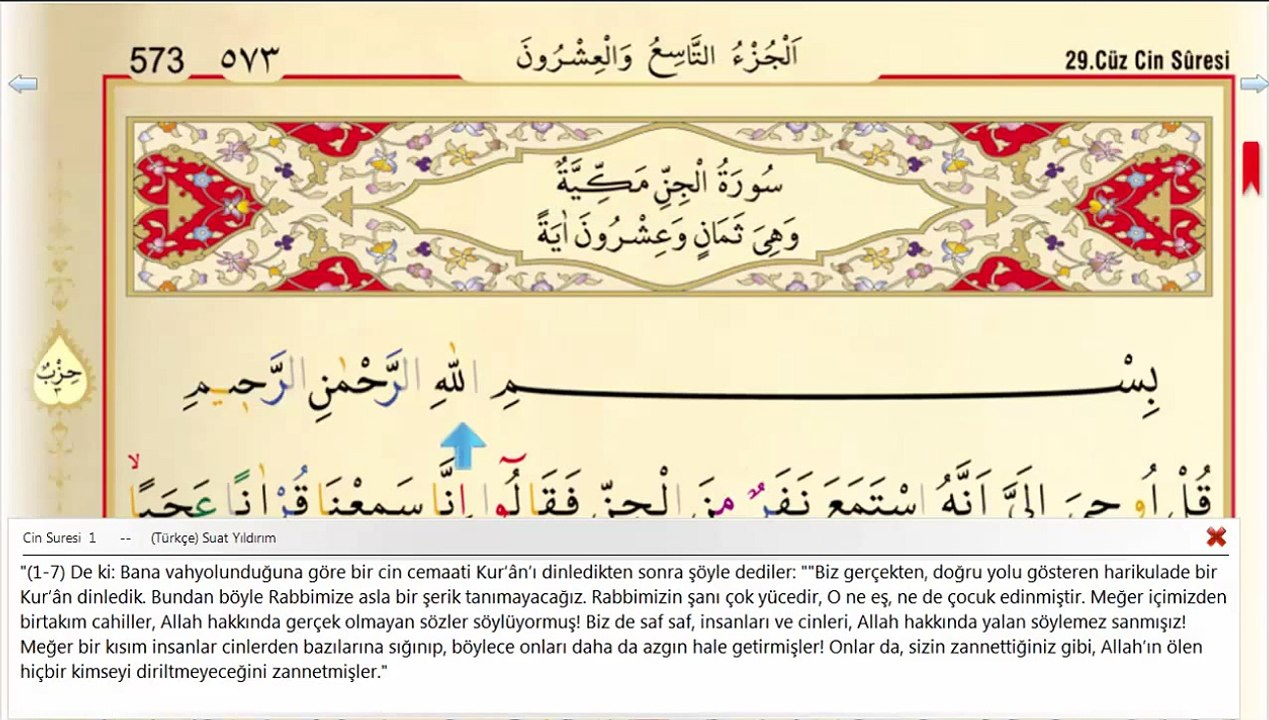 573 ٥٧٣ اَلْجُزْءُ التَّاسِعُ وَالْعِشْرُونَ 29.Cüz Cin Sûresi
سُورَةُ الْجِنِّ مَكِّيَّةٌ
وَهِيَ ثَمَانٍ وَعِشْرُونَ اٰيَةً
حِزْبٌ ٣
بِسْمِ اللّٰهِ الرَّحْمٰنِ الرَّحِيمِ
قُلْ اُو۫حِيَ اِلَيَّ اَنَّهُ اسْتَمَعَ نَفَرٌ مِنَ الْجِنِّ فَقَالُٓوا اِنَّا سَمِعْنَا قُرْاٰنًا عَجَبًاۙ
Cin Suresi 1 -- (Türkçe) Suat Yıldırım
"(1-7) De ki: Bana vahyolunduğuna göre bir cin cemaati Kur’ân’ı dinledikten sonra şöyle dediler: ""Biz gerçekten, doğru yolu gösteren harikulade bir
Kur’ân dinledik. Bundan böyle Rabbimize asla bir şerik tanımayacağız. Rabbimizin şanı çok yücedir, O ne eş, ne de çocuk edinmiştir. Meğer içimizden
birtakım cahiller, Allah hakkında gerçek olmayan sözler söylüyormuş! Biz de saf saf, insanları ve cinleri, Allah hakkında yalan söylemez sanmışız!
Meğer bir kısım insanlar cinlerden bazılarına sığınıp, böylece onları daha da azgın hale getirmişler! Onlar da, sizin zannettiğiniz gibi, Allah’ın ölen
hiçbir kimseyi diriltmeyeceğini zannetmişler."